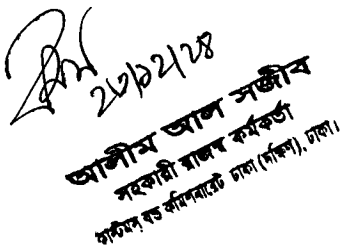 ২৩/১২/২৪
আলীম আল সজীব
সহকারী রাজস্ব কর্মকর্তা
কাস্টমস্ বন্ড কমিশনারেট ঢাকা (দক্ষিণ), ঢাকা।